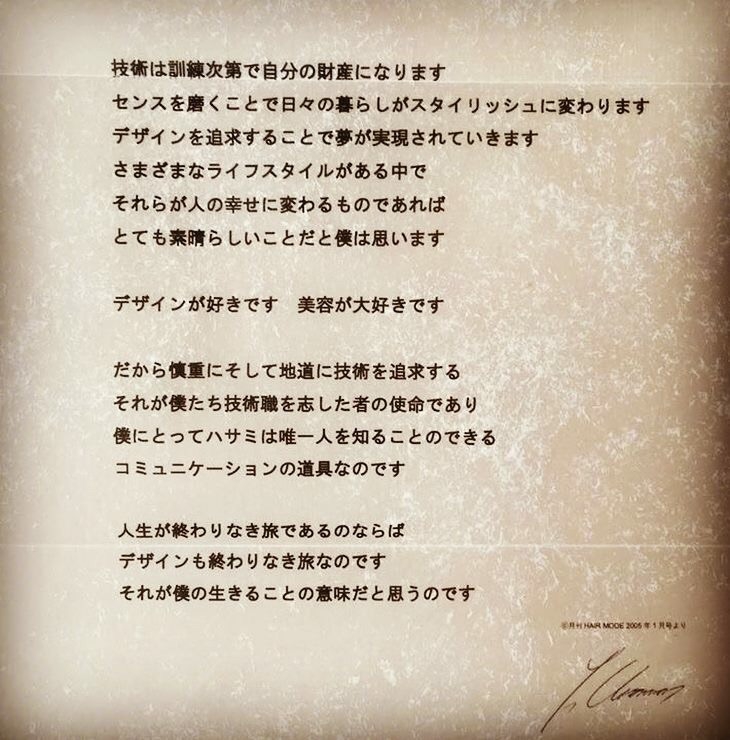 技術は訓練次第で自分の財産になります
センスを磨くことで日々の暮らしがスタイリッシュに変わります
デザインを追求することで夢が実現されていきます
さまざまなライフスタイルがある中で
それらが人の幸せに変わるものであれば
とても素晴らしいことだと僕は思います
デザインが好きです　美容が大好きです
だから慎重にそして地道に技術を追求する
それが僕たち技術職を志した者の使命であり
僕にとってハサミは唯一人を知ることのできる
コミュニケーションの道具なのです
人生が終わりなき旅であるのならば
デザインも終わりなき旅なのです
それが僕の生きることの意味だと思うのです
月刊 HAIR MODE 2005年1月号より